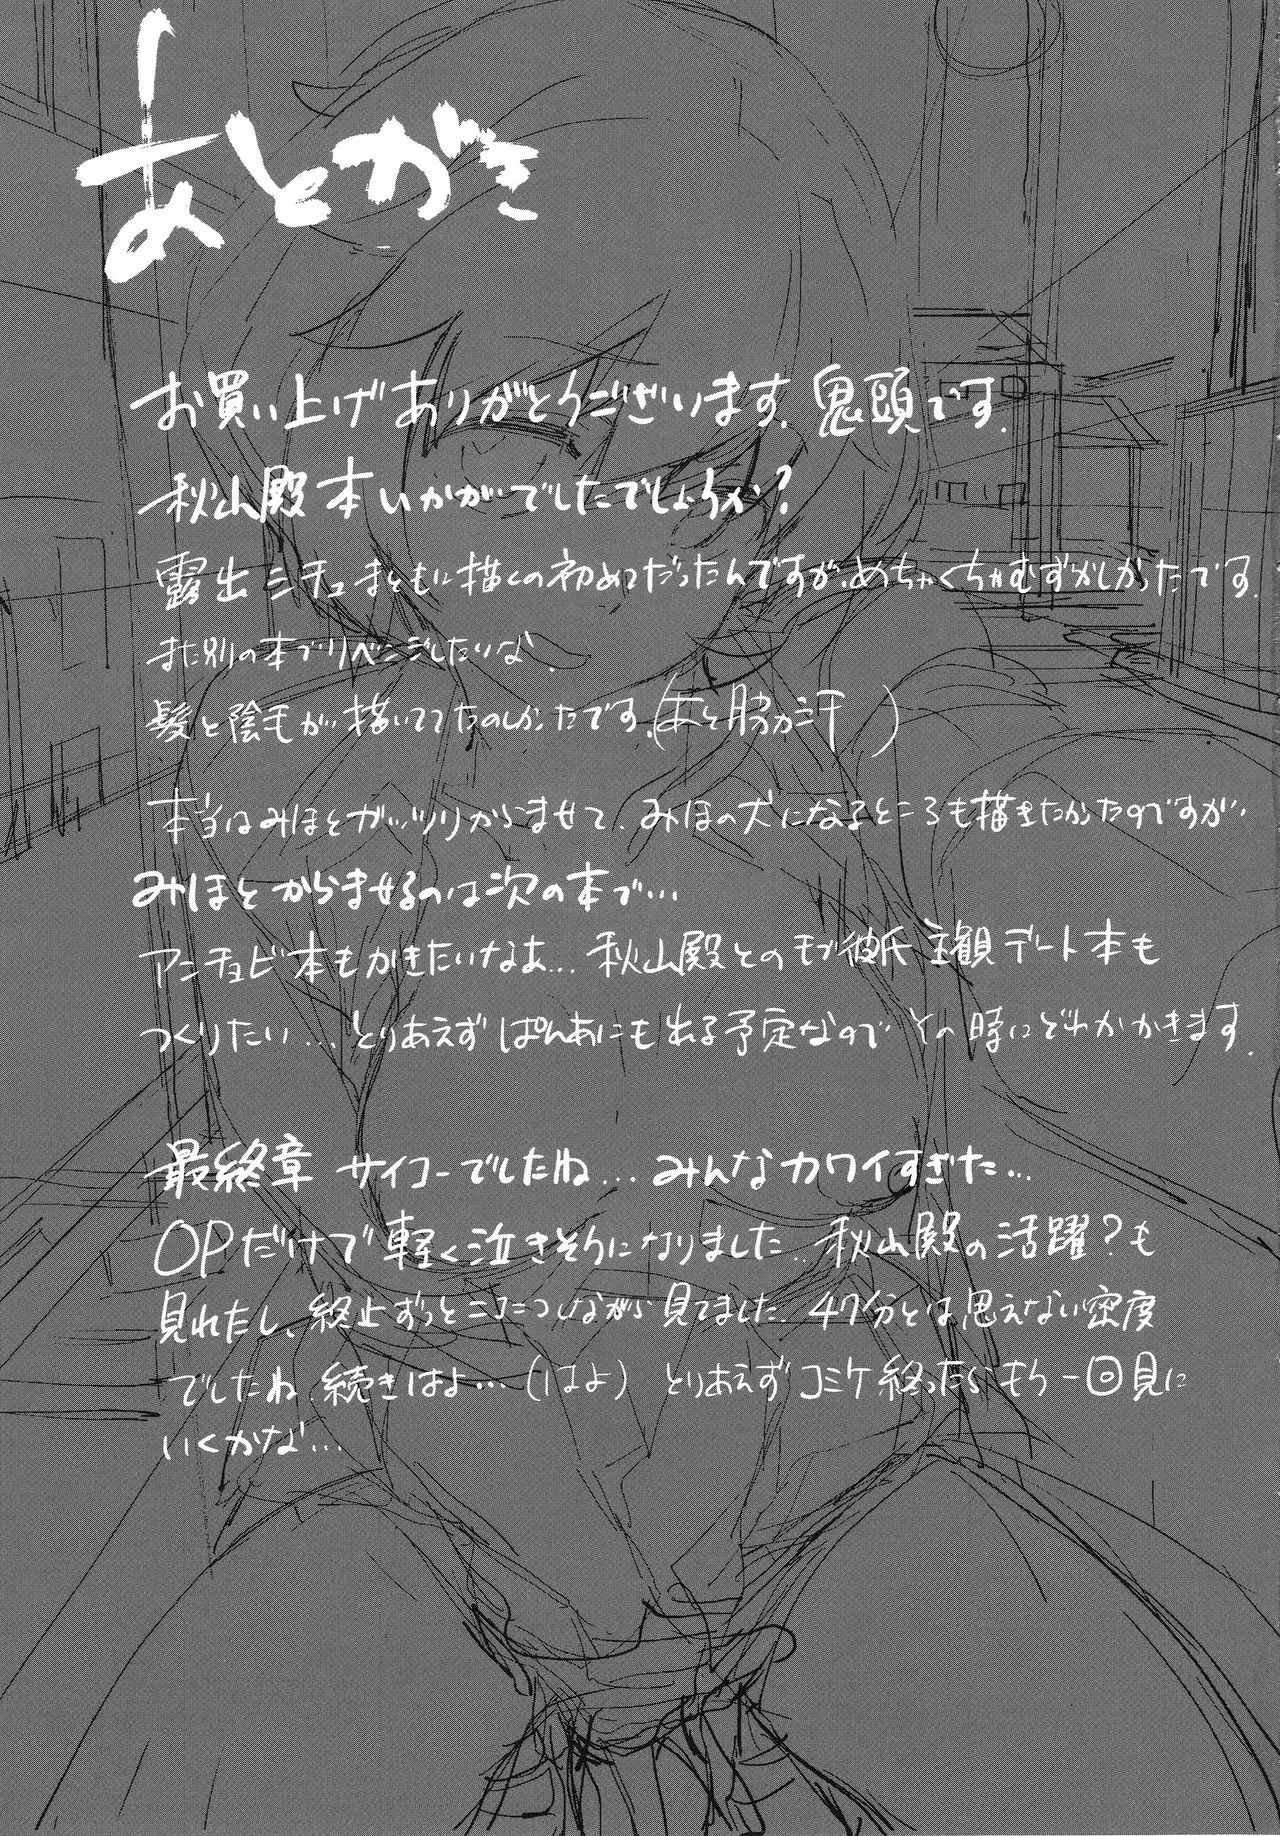 あとがき
お買い上げありがとうございます。鬼頭です。
秋山殿本いかがでしたでしょうか?
露出シチュまともに描くの初めてだったんですが、めちゃくちゃむずかしかったです。
また別の本でリベンジしたいな。
髪と陰毛が描いててたのしかったです。(あと脇汗)
本当はみほとガッツリからませて、みほの犬になるところも描きたかったのですが、
みほとからませるのは次の本で…
アンチョビ本もかきたいなぁ…秋山殿とのモブ彼氏主観デート本も
つくりたい…とりあえずぱんあにも出る予定なのでその時にどれかかきます。
最終章サイコーでしたね…みんなカワイすぎた…
OPだけで軽く泣きそうになりました…秋山殿の活躍?も
見れたし、終止ずっとニコニコしながら見てました。47分とは思えない密度
でしたね。続きはよ…(はよ)とりあえずコミケ終ったらもう一回見に
いくかな…